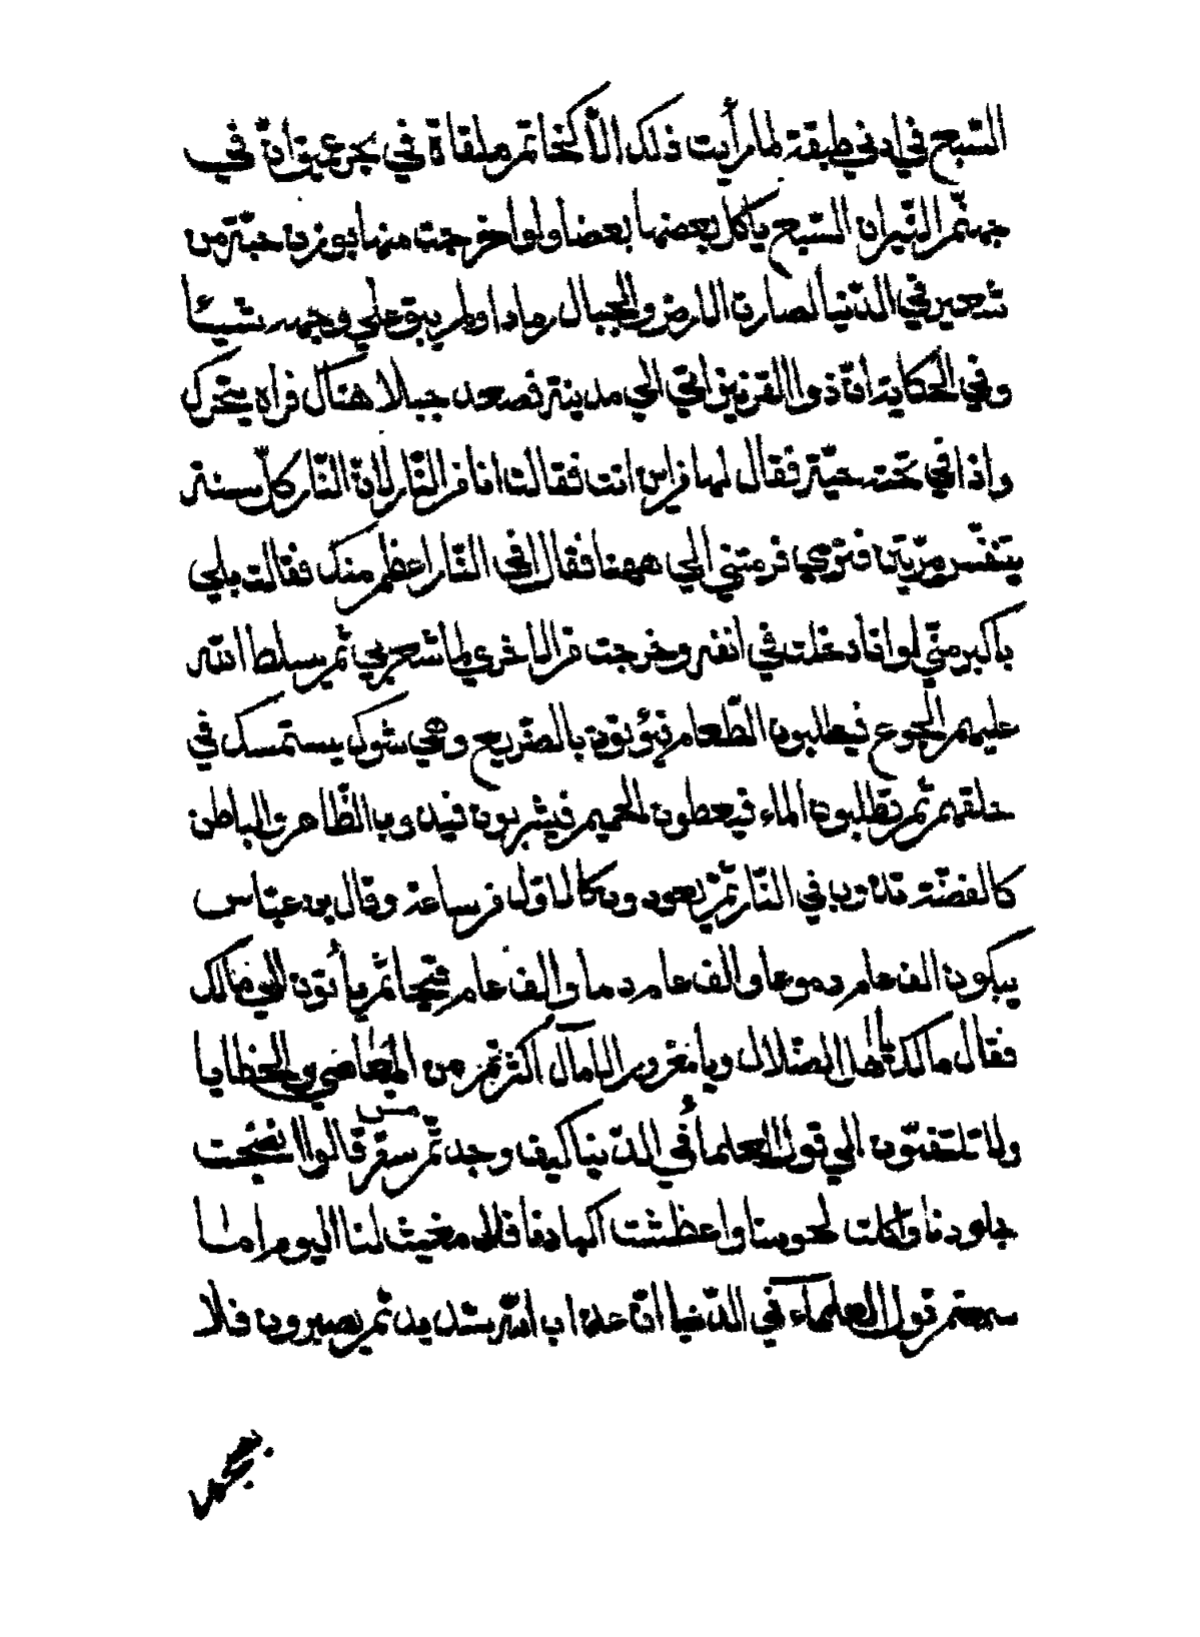 السّبع في ادني طبقة لما رأيت ذلك الّا كخاتم ملقاة في بحر عميق انّ في
جهنّم النّيران السّبع ياكل بعضها بعضا ولوا خرجت منها بوزن حبّة من
شعير في الدّنيا لصارت الارض والجبال رمادا ولم يبق علي وجهه شيئا
وفي الحكاية انّ ذوا القرنين اتي الي مدينة فصعد جبلا هناك فراه يتحرك
واذا في تحته حيّة فقال لها فراين انت فقالت انا فر النّار لانّ النّار كلّ سنة
يتنفّس مرّتين فترمي فرمتني الي ههنا فقال افي النّار اعظم منك فقالت بلي
باكبر منّي لو انا دخلت في انفه وخرجت فر الاخري لما شعر بي ثم يسلط الله
عليهم الجوع فيطلبون الطّعام فيؤتون بالضّريع وهي شوك يستمسك في
حلقهم ثم تطلبون الماء فيعطون الحميم فيشربون فيذوب الظّاهر والباطن
كالفضّة تذوب في النّار ثمّ يعودون كالاوّل فر ساعة وقال بن عبّاس
يبكون الف عام دموعا والف عام دما والف عام قيحا ثم يأتون الي مالك
فقال مالك يا اهل الضّلال ويا مغرور الامآل اكثرتم من المعاصي والخطايا
ولا تلتفتون الي قول العلما في الدّنيا كيف وجدتّم مس سقر قالوا انضجت
جلودنا واكلت لحومنا واعطشت اكبادنا فلا مغيث لنا اليوم اما
سمعتم قول العلماء في الدّنيا انّ عذاب الله شديد ثم يصبرون فلا